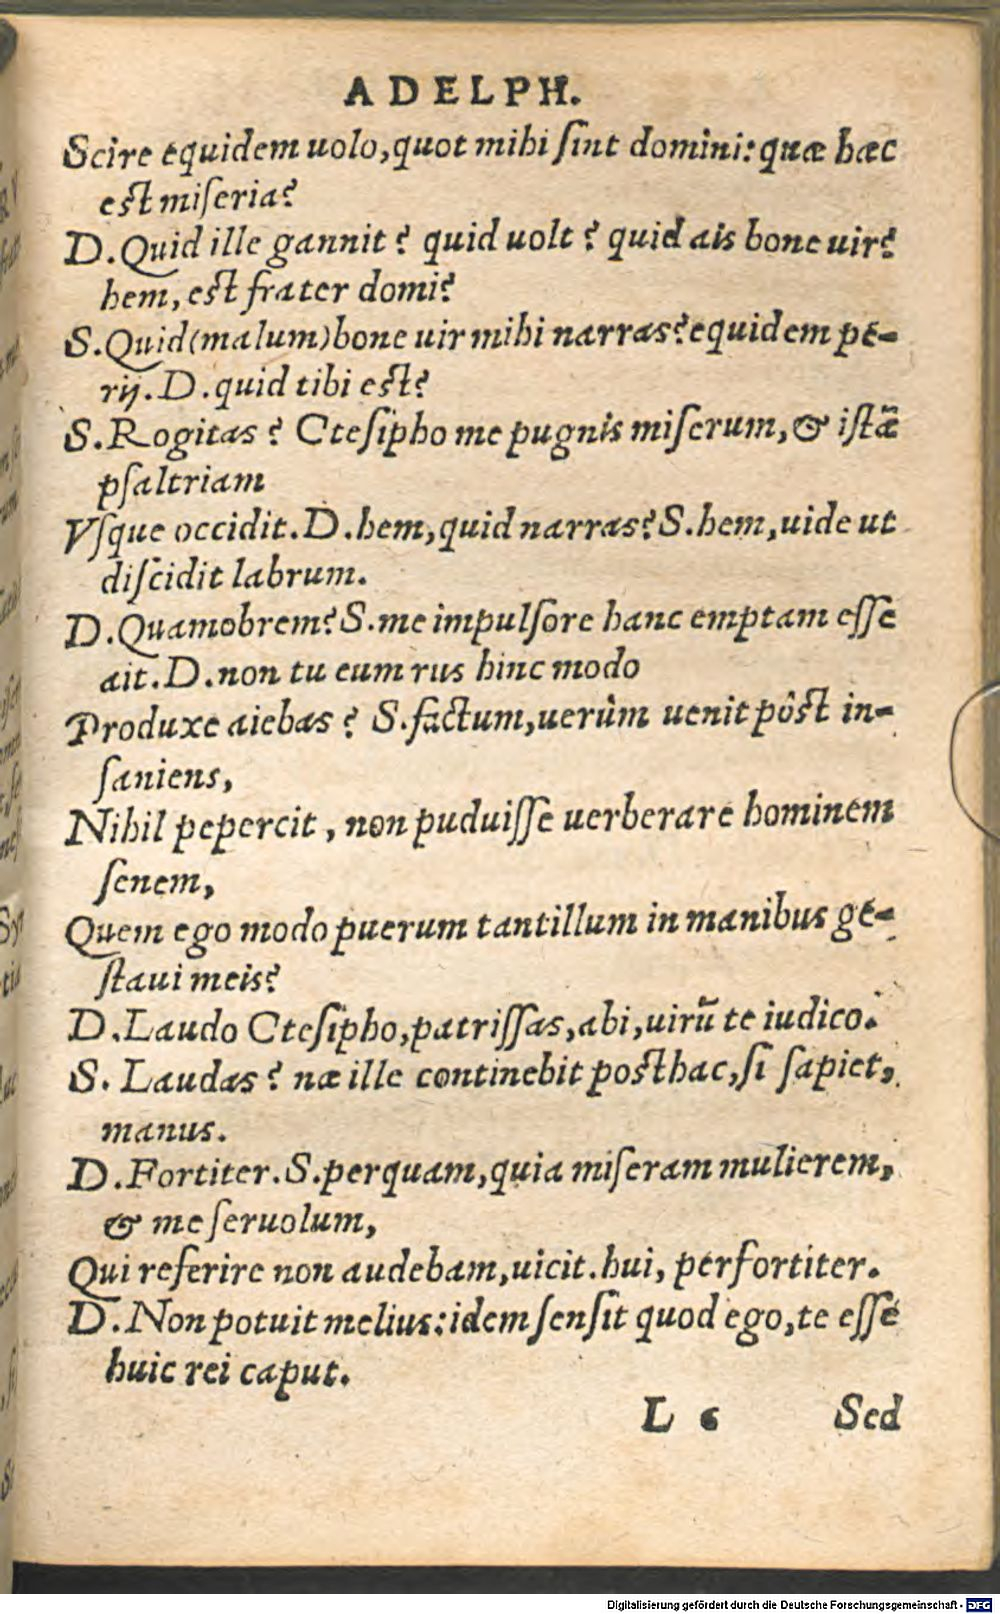 ADELPH.
Scire equidem uolo, quot mihi sint domini: quæ hæc
est miseria?
D. Quid ille gannit? quid uolt? quid ais bone uir?
hem, est frater domi?
S. Quid (malum) bone uir mihi narras? equidem pe-
rij. D. quid tibi est?
S. Rogitas? Ctesipho me pugnis miserum, & istã
psaltriam
Vsque occidit. D. hem, quid narras? S. hem, uide ut
discidit labrum.
D. Quamobrem? S. me impulsore hanc emptam esse
ait. D. non tu eum rus hinc modo
Produxe aiebas? S. factum, uerùm uenit pòst in-
saniens,
Nihil pepercit, non puduisse uerberare hominem
senem,
Quem ego modo puerum tantillum in manibus ge-
staui meis?
D. Laudo Ctesipho, patrissas, abi, uirũ te iudico.
S. Laudas? næ ille continebit posthac, si sapiet,
manus.
D. Fortiter. S. perquam, quia miseram mulierem,
& me seruolum,
Qui referire non audebam, uicit. hui, perfortiter.
D. Non potuit melius: idem sensit quod ego, te esse
huic rei caput.
L 6 Sed
Digitalisierung gefördert durch die Deutsche Forschungsgemeinschaft - DFG